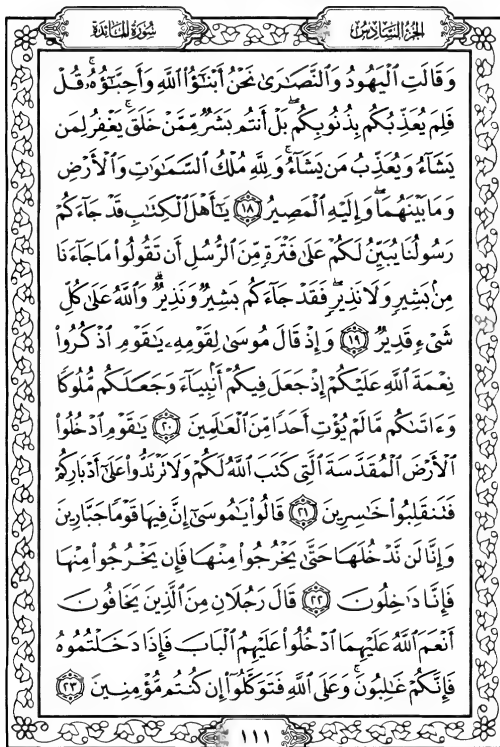 سُورَةُ المَائدَة
الجُزءُ السَّادِسُ
وَقَالَتِ ٱلْيَهُودُ وَٱلنَّصَٰرَىٰ نَحْنُ أَبْنَٰٓؤُا۟ ٱللَّهِ وَأَحِبَّٰٓؤُهُۥۚ قُلْ
فَلِمَ يُعَذِّبُكُم بِذُنُوبِكُمۖ بَلْ أَنتُم بَشَرٌ مِّمَّنْ خَلَقَۚ يَغْفِرُ لِمَن
يَشَآءُ وَيُعَذِّبُ مَن يَشَآءُۚ وَلِلَّهِ مُلْكُ ٱلسَّمَٰوَٰتِ وَٱلْأَرْضِ
وَمَا بَيْنَهُمَاۖ وَإِلَيْهِ ٱلْمَصِيرُ ١٨ يَٰٓأَهْلَ ٱلْكِتَٰبِ قَدْ جَآءَكُمْ
رَسُولُنَا يُبَيِّنُ لَكُمْ عَلَىٰ فَتْرَةٍ مِّنَ ٱلرُّسُلِ أَن تَقُولُوا۟ مَا جَآءَنَا
مِنۢ بَشِيرٍ وَلَا نَذِيرٍۖ فَقَدْ جَآءَكُم بَشِيرٌ وَنَذِيرٌۗ وَٱللَّهُ عَلَىٰ كُلِّ
شَىْءٍ قَدِيرٌ ١٩ وَإِذْ قَالَ مُوسَىٰ لِقَوْمِهِۦ يَٰقَوْمِ ٱذْكُرُوا۟
نِعْمَةَ ٱللَّهِ عَلَيْكُمْ إِذْ جَعَلَ فِيكُمْ أَنۢبِيَآءَ وَجَعَلَكُم مُّلُوكًا
وَءَاتَىٰكُم مَّا لَمْ يُؤْتِ أَحَدًا مِّنَ ٱلْعَٰلَمِينَ ٢٠ يَٰقَوْمِ ٱدْخُلُوا۟
ٱلْأَرْضَ ٱلْمُقَدَّسَةَ ٱلَّتِى كَتَبَ ٱللَّهُ لَكُمْ وَلَا تَرْتَدُّوا۟ عَلَىٰٓ أَدْبَارِكُمْ
فَتَنقَلِبُوا۟ خَٰسِرِينَ ٢١ قَالُوا۟ يَٰمُوسَىٰٓ إِنَّ فِيهَا قَوْمًا جَبَّارِينَ
وَإِنَّا لَن نَّدْخُلَهَا حَتَّىٰ يَخْرُجُوا۟ مِنْهَا فَإِن يَخْرُجُوا۟ مِنْهَا
فَإِنَّا دَٰخِلُونَ ٢٢ قَالَ رَجُلَانِ مِنَ ٱلَّذِينَ يَخَافُونَ
أَنْعَمَ ٱللَّهُ عَلَيْهِمَا ٱدْخُلُوا۟ عَلَيْهِمُ ٱلْبَابَ فَإِذَا دَخَلْتُمُوهُ
فَإِنَّكُمْ غَٰلِبُونَۚ وَعَلَى ٱللَّهِ فَتَوَكَّلُوٓا۟ إِن كُنتُم مُّؤْمِنِينَ ٢٣
١١١